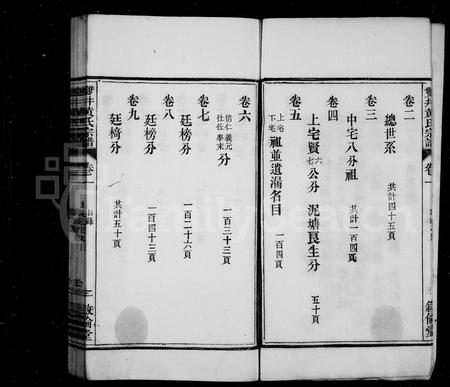 雙井黃氏宗譜 卷一
卷二
總世系 共計四十五頁
卷三
中宅八分祖 共計一百四頁
卷四
上宅賢六七公分 泥塘良生分 五十頁
卷五
上宅下宅祖並遺漏名目 一百四頁
卷六
信仁義元仕佐學末分 一百三十三頁
卷七
廷榜分 一百二十六頁
卷八
廷榜分 一百四十三頁
卷九
廷楇分 共計五十頁
雙井黃氏宗譜 卷一 敦倫堂